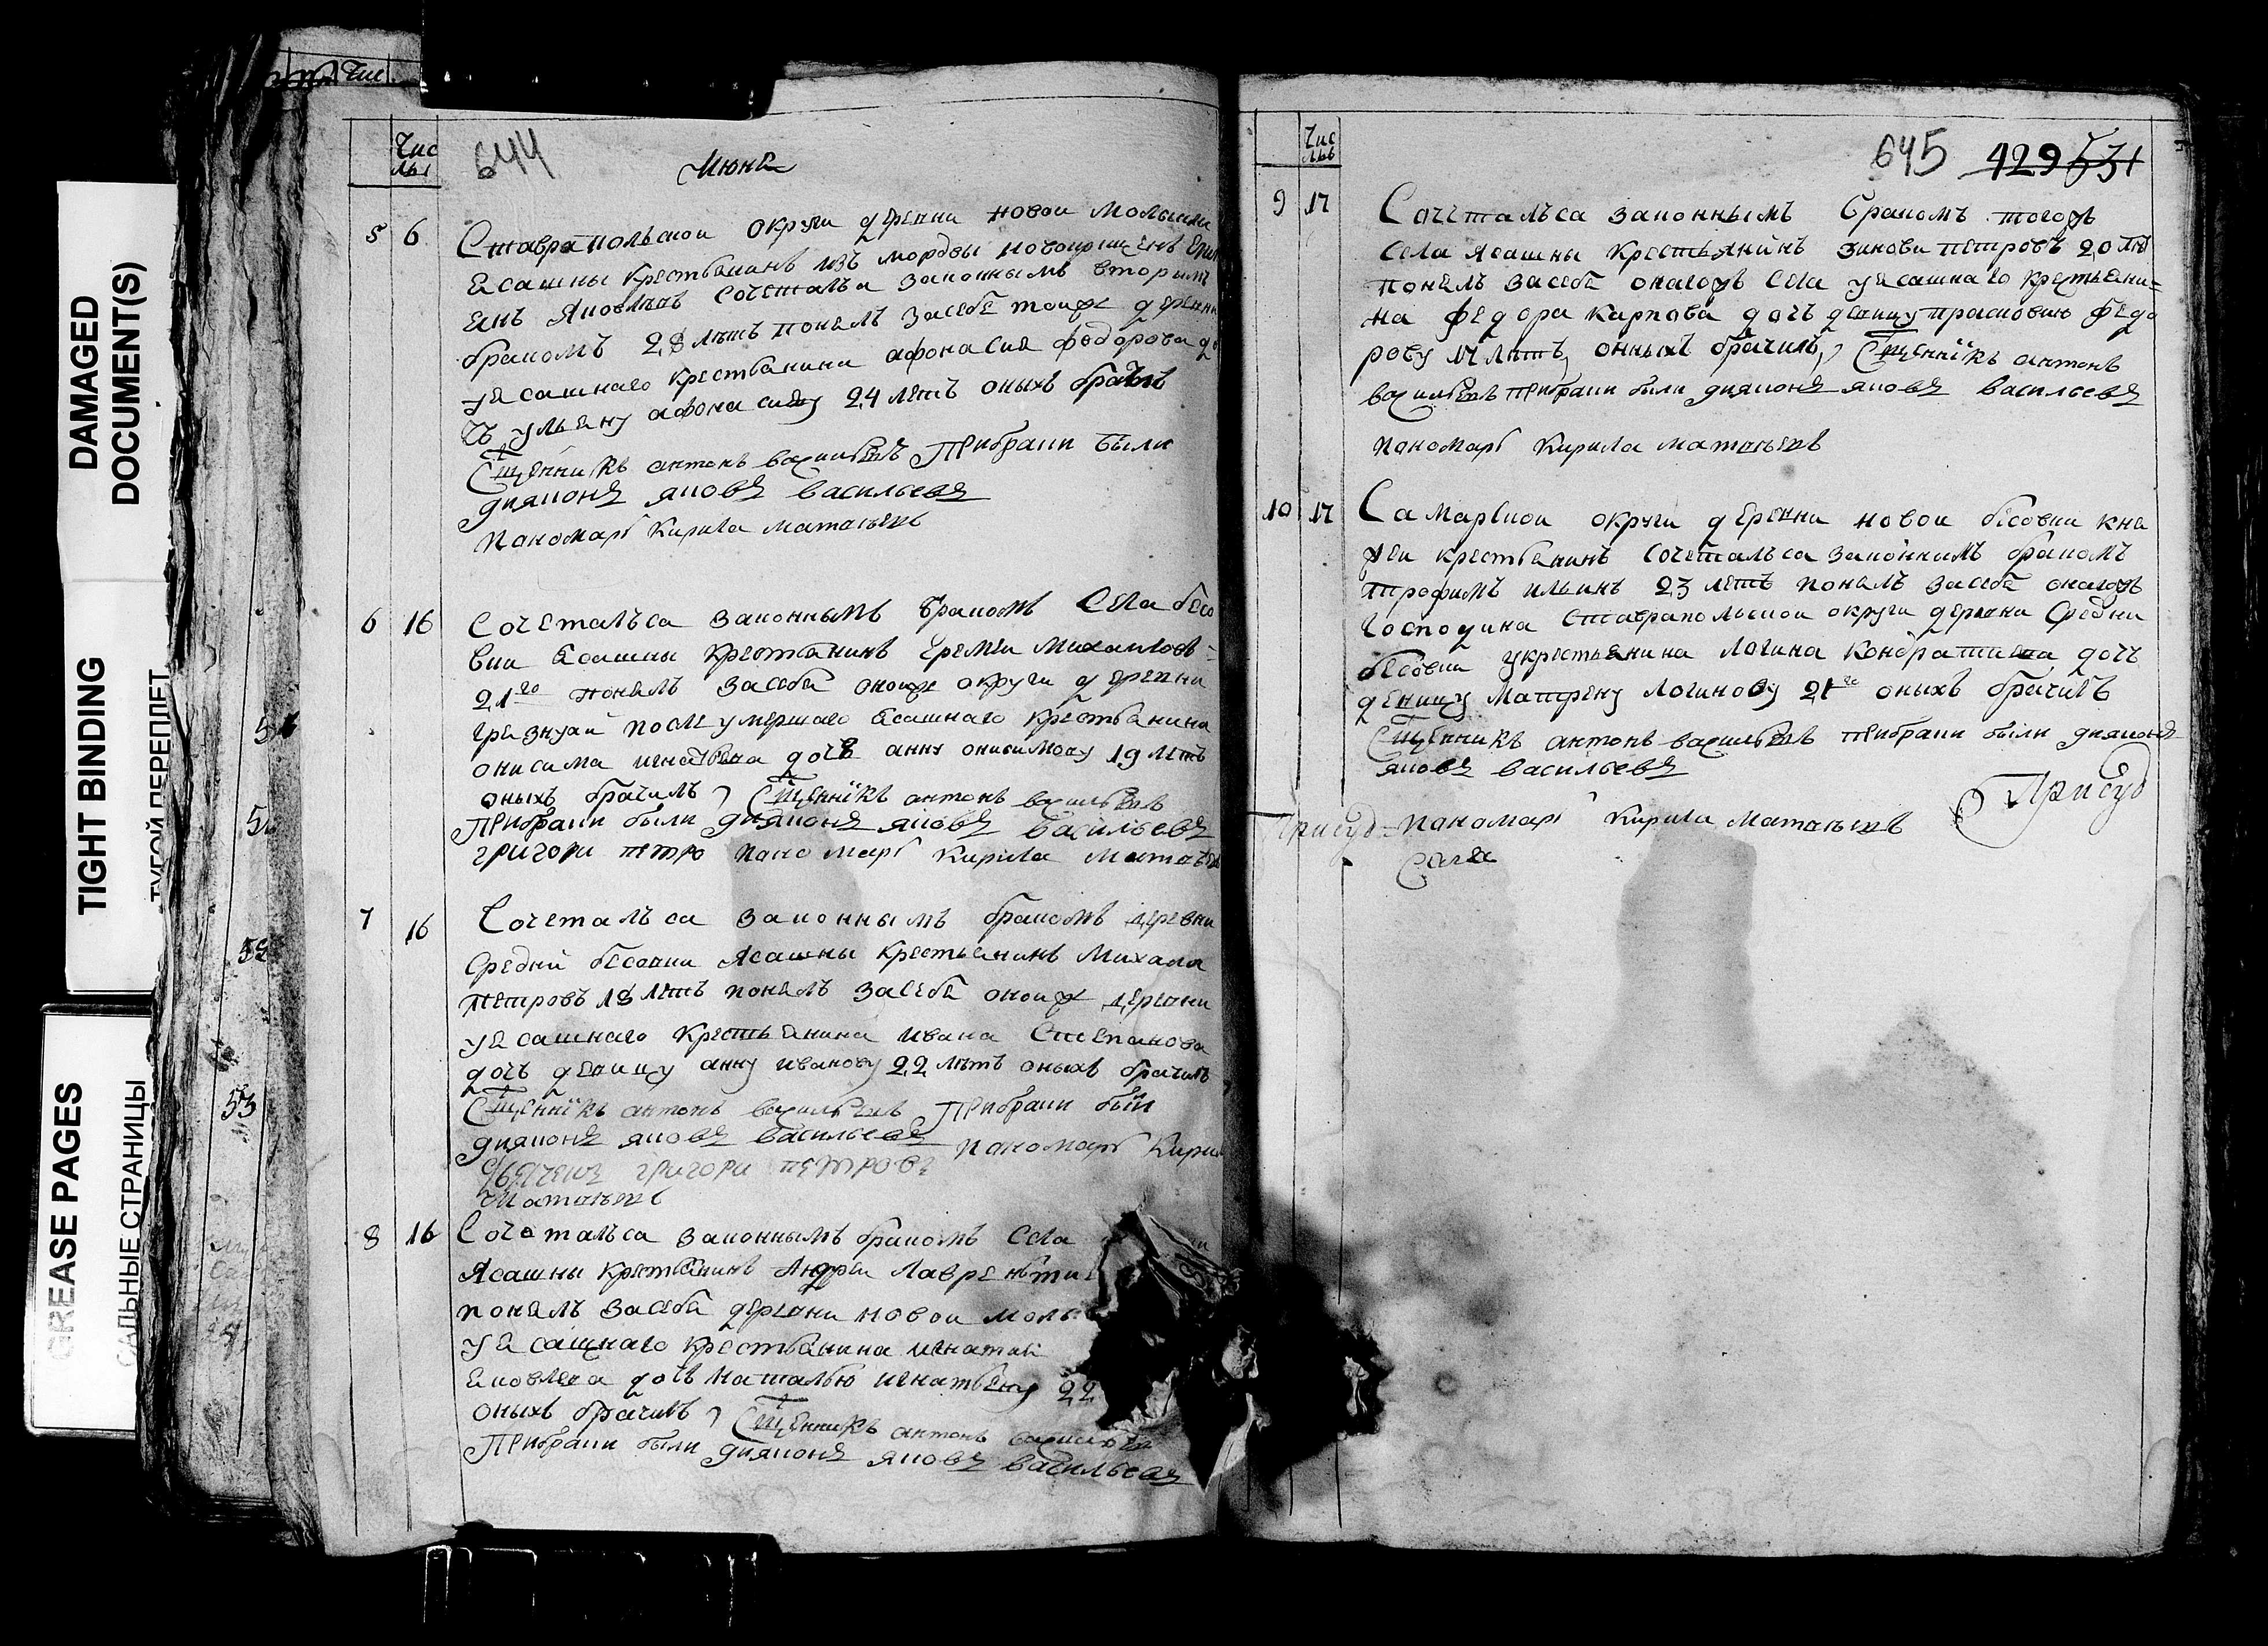 DAMAGED
DOCUMENT(S)
TIGHT BINDING
ТУГОЙ ПЕРЕПЛЕТ
GREASE PAGES
САЛЬНЫЕ СТРАНИЦЫ
Чис
лы
644
Июня
5 6 Ставрапольскои округи деревни новои молыкли
ясашны крестьянинъ изъ мордвы новокрещенъ
яковлевъ сочетался законнымъ вторымъ
бракомъ 28 летъ понялъ засебя тоиже деревни
уясашнаго крестьянина афонасия федорова до
чъ ульяну афонасиеву 24 летъ оныхъ брачилъ
Сщенникъ антонъ васильевъ Прибраки были
дияконъ яковъ васильевъ
Пономарь Кирила матвѣевъ
6 16 Сочеталъса законнымъ бракомъ Села бесо
вки ясашны крестьянинъ еремеи михаиловъ
21го понялъ засебя оноиже округи деревни
грязнухи после умершаго ясашнаго крестьянина
онисима игнатьева дочь анну онисимову 19 летъ
оныхъ брачилъ Сщенникъ антонъ васильевъ
Прибраки были дияконъ яковъ васильевъ
григори петро пономарь Кирила матвѣевъ
7 16 Сочеталъса законнымъ бракомъ деревни
Средней бесовки ясашны крестьянинъ михаила
петровъ 18 летъ понялъ засебя оноиже деревни
уясашнаго крестьянина ивана Степанова
дочъ девицу анну иванову 22 летъ оныхъ брачилъ
Сщенникъ антонъ васильевъ Прибраки были
дияконъ яковъ васильевъ пономарь Кирила
григори петровъ
Матвѣевъ
8 16 Сочеталъса законнымъ бракомъ Села
Ясашны крестьянинъ Андреи Лаврентие
понялъ засебя деревни новои молы
уясашнаго крестьянина игнатия
яковлева дочь наталью игнатьеву 22
оныхъ брачилъ Сщенникъ антонъ васильевъ
Прибраки были дияконъ яковъ васильевъ
Чис
лы
645 429 531
9 17 Сочеталъса законнымъ бракомъ тогожъ
Села ясашны крестьянинъ зинови петровъ 20 лѣ
понялъ засебя онагожъ Села уясашнаго крестьяни=
на федора карпова дочь девицу прасковью федо
рову 17 летъ онныхъ брачилъ Сщенникъ антонъ
васильевъ прибраки были дияконъ яковъ васильевъ
пономарь Кирила матвѣевъ
10 17 Самарскои округи деревни новои бесовки кня
жеи крестьянинъ сочеталъса законнимъ бракомъ
трофимъ ильинъ 23 летъ понялъ засебя онагожъ
господина ставрапольскои округи деревни Средни
бесовки укрестьянина логина кондратиева дочь
девицу матрену логинову 21го оныхъ брачилъ
Сщенникъ антонъ васильевъ прибраки были диаконъ
яковъ васильевъ
пономарь Кирила матвѣевъ